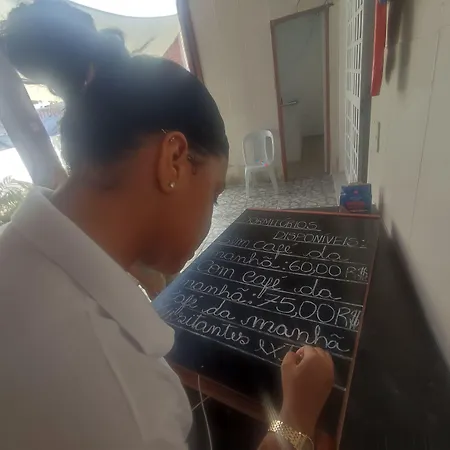 DORMITÓRIOS
DISPONIVEIS:
com café da
manhã:60,00R$
com café da
manhã:75,00R$
café da manhã
visitantes